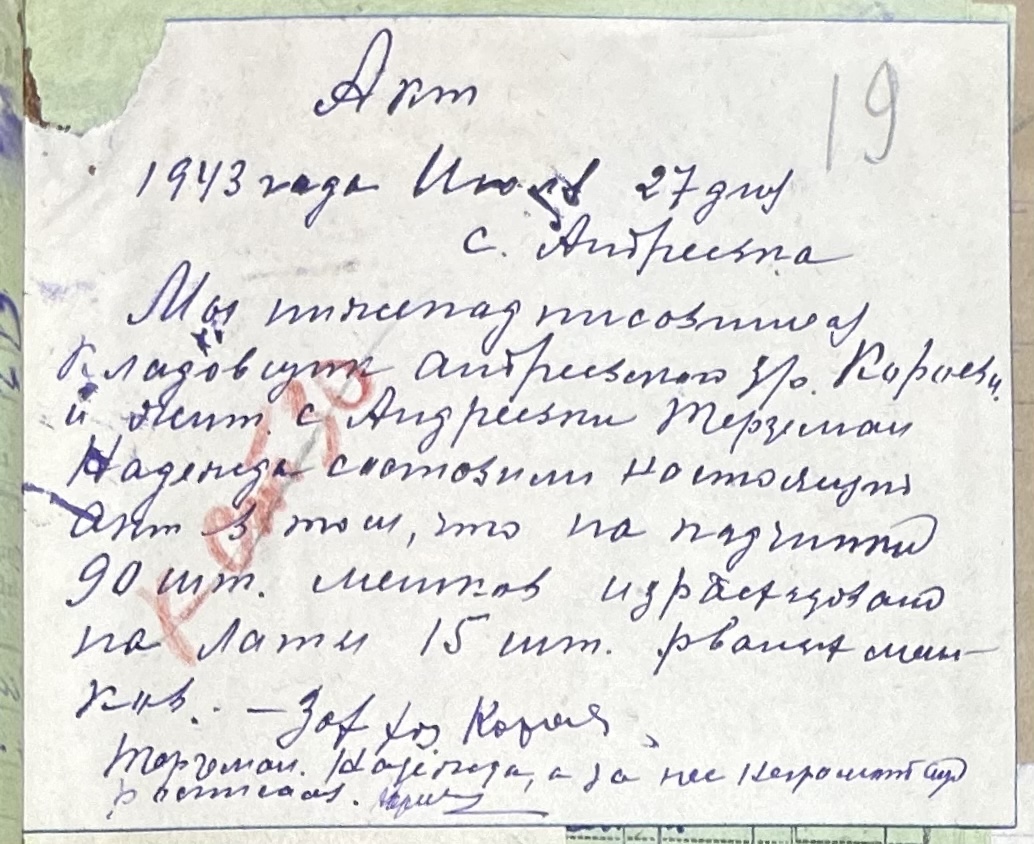 19
Акт
1943 года Июля 27 дня
с. Андреевка
Мы нижеподписовшиеся
Кладовщик Андреевского з/о. Короевич
и жит. с Андреевки Терземан
Надежда состовилиностоящий
Акт в том, что на падчинку
90 шт. мешков израсходовано
на латы 15 шт. рваных меш-
ков. - Зав Короев
Терземан. Надежда, а за нее неграмотную
росписался.